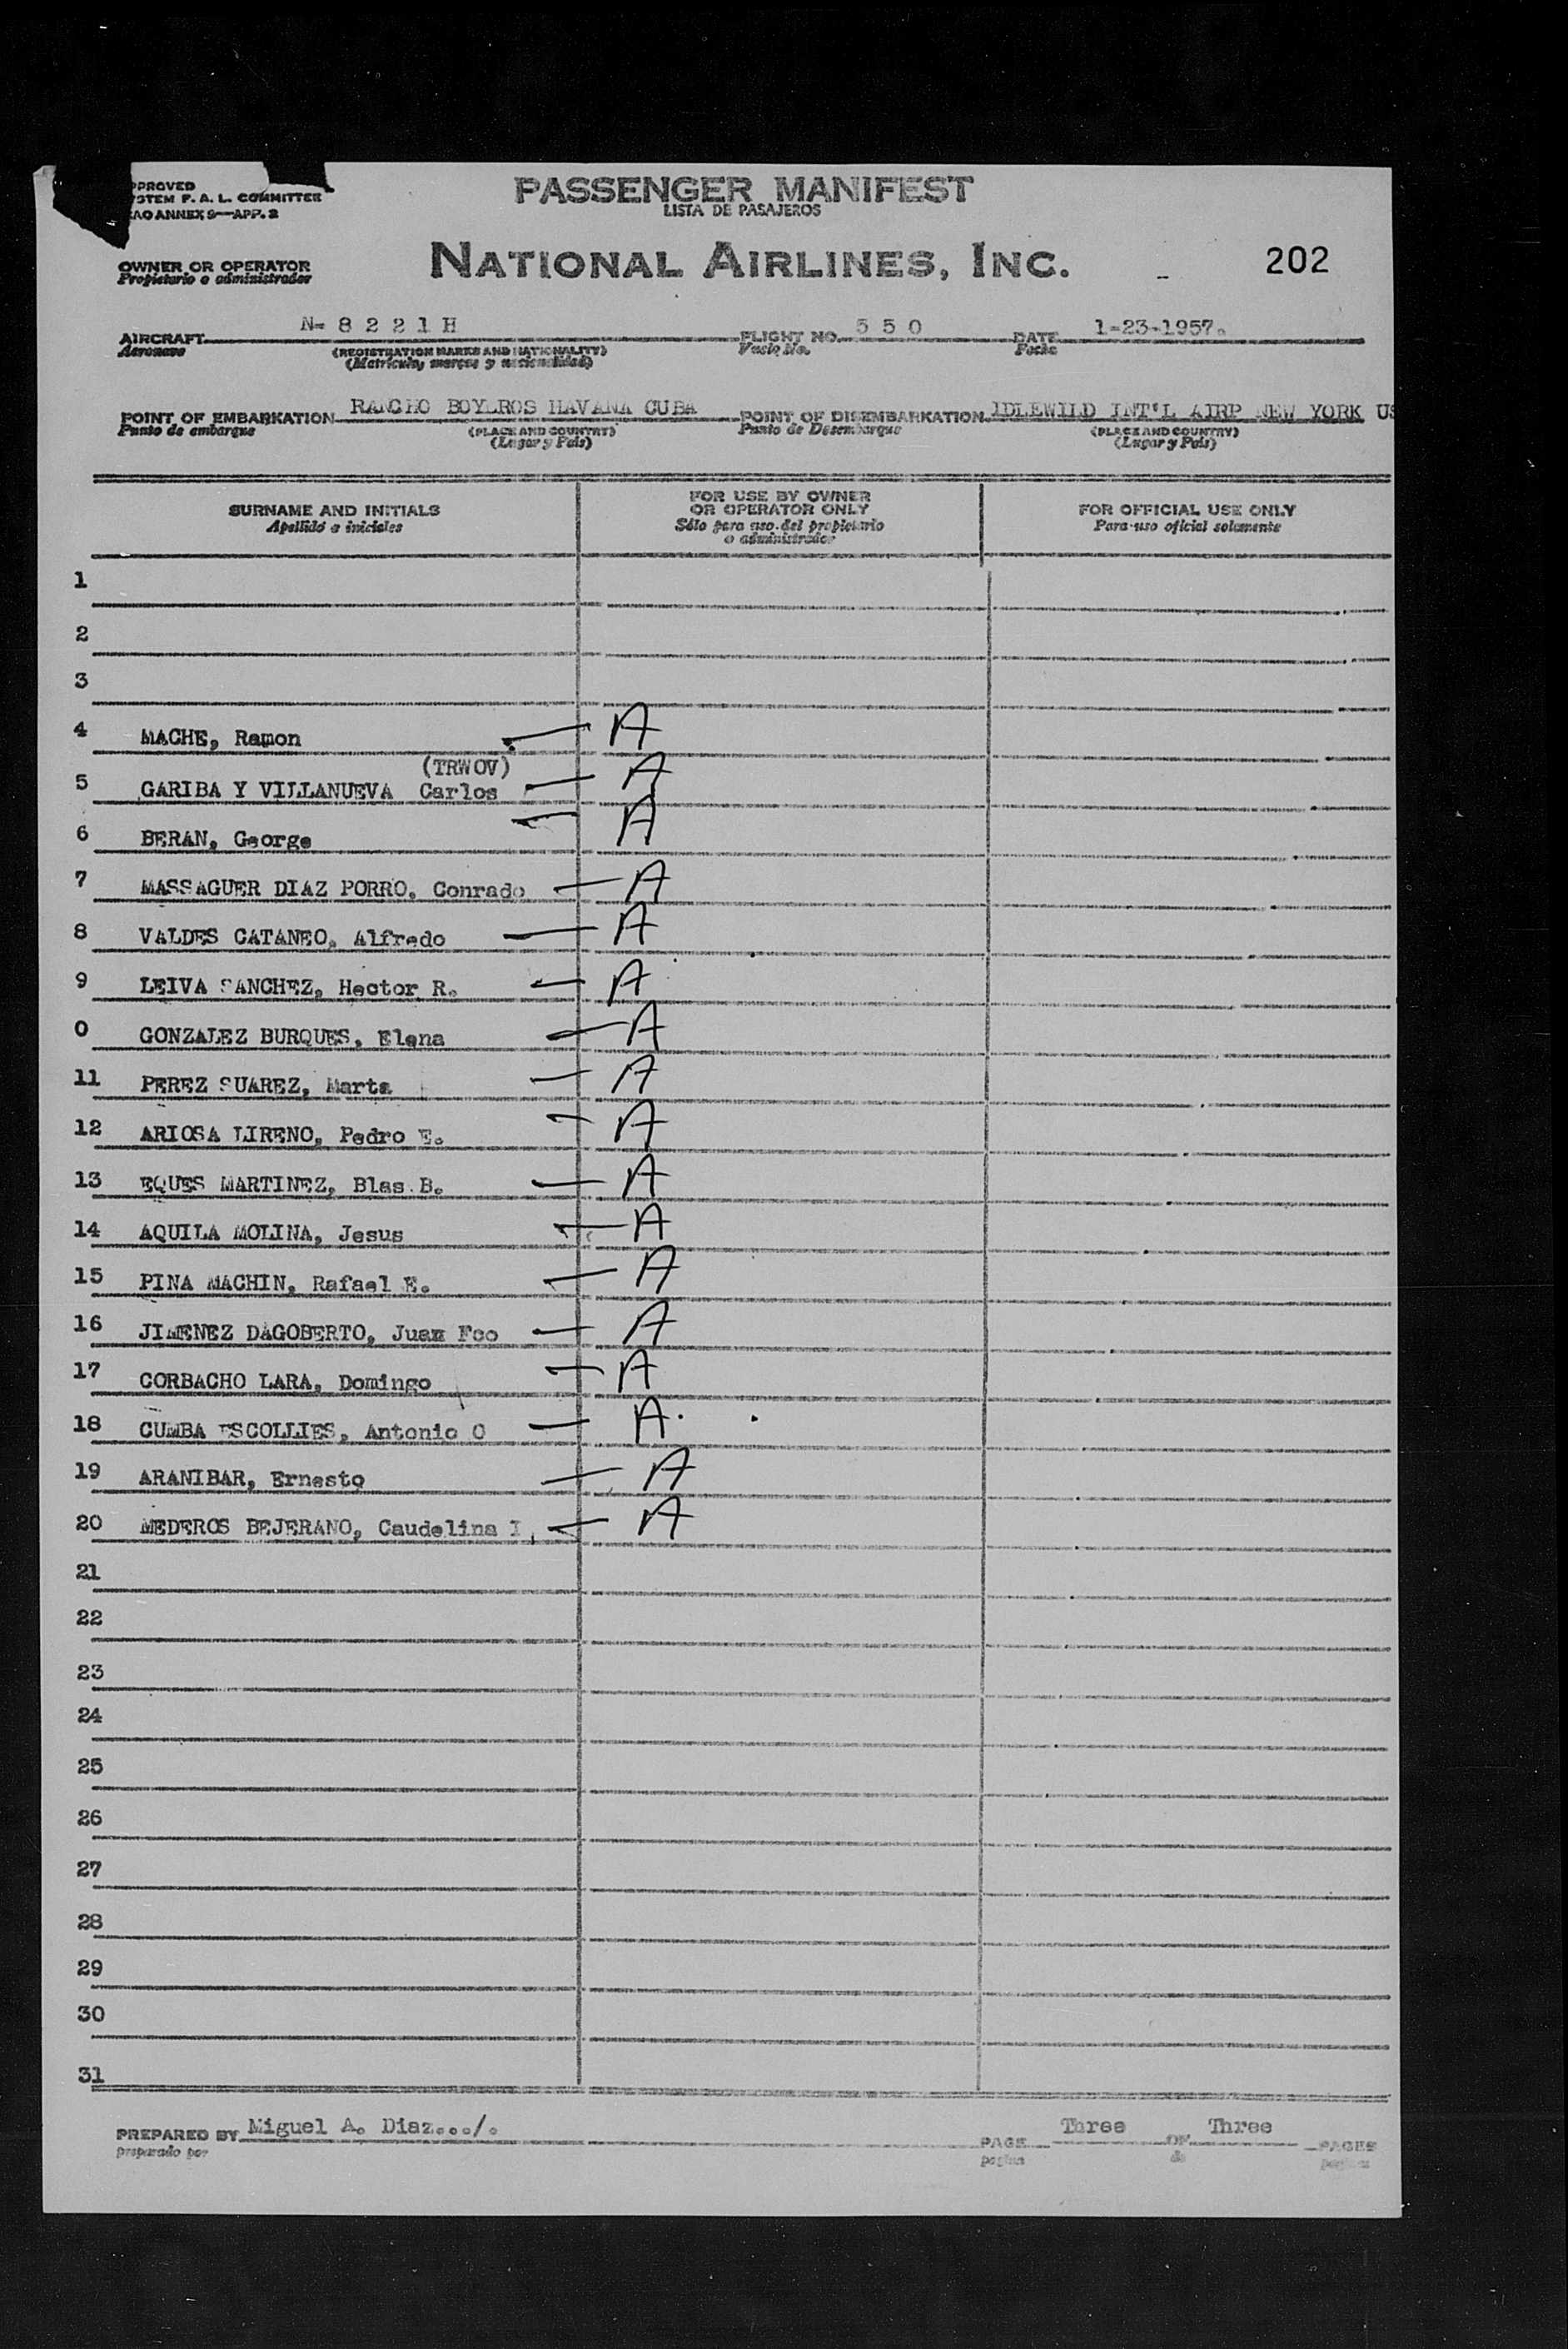 PPROVED
STEM F. A. L. COMMITTEE
AO ANNEX 9—APP. 2
PASSENGER MANIFEST
LISTA DE PASAJEROS
OWNER OR OPERATOR
Propietario o administrador
NATIONAL AIRLINES, INC.
202
AIRCRAFT N- 8 2 2 1 H FLIGHT NO. 5 5 0 DATE 1-23-1957.
Aeronave (REGISTRATION MARKS AND NATIONALITY) Vuelo No. Fecha
(Matricula, marcas y nacionalidad)
POINT OF EMBARKATION RANCHO BOYEROS HAVANA CUBA POINT OF DISEMBARKATION IDLEWILD INT'L AIRP NEW YORK US
Punto de embarque (PLACE AND COUNTRY) Punto de Desembarque (PLACE AND COUNTRY)
(Lugar y Pais) (Lugar y Pais)
SURNAME AND INITIALS
Apellido e iniciales
FOR USE BY OWNER
OR OPERATOR ONLY
Sólo para uso del propietario
o administrador
FOR OFFICIAL USE ONLY
Para uso oficial solamente
1
2
3
4 MACHE, Ramon A
(TRWOV)
5 GARIBA Y VILLANUEVA Carlos A
6 BERAN, George A
7 MASSAGUER DIAZ PORRO, Conrado A
8 VALDES CATANEO, Alfredo A
9 LEIVA SANCHEZ, Hector R. A
0 GONZALEZ BURQUES, Elena A
11 PEREZ SUAREZ, Marta A
12 ARIOSA LIRENO, Pedro E. A
13 EQUES MARTINEZ, Blas B. A
14 AQUILA MOLINA, Jesus A
15 PINA MACHIN, Rafael E. A
16 JIMENEZ DAGOBERTO, Juan Fco A
17 CORBACHO LARA, Domingo A
18 CUMBA ESCOLLIES, Antonio O A
19 ARANIBAR, Ernesto A
20 MEDEROS BEJERANO, Caudelina I. A
21
22
23
24
25
26
27
28
29
30
31
PREPARED BY Miguel A. Diaz.../. PAGE Three OF Three PAGES
preparado por pagina de paginas